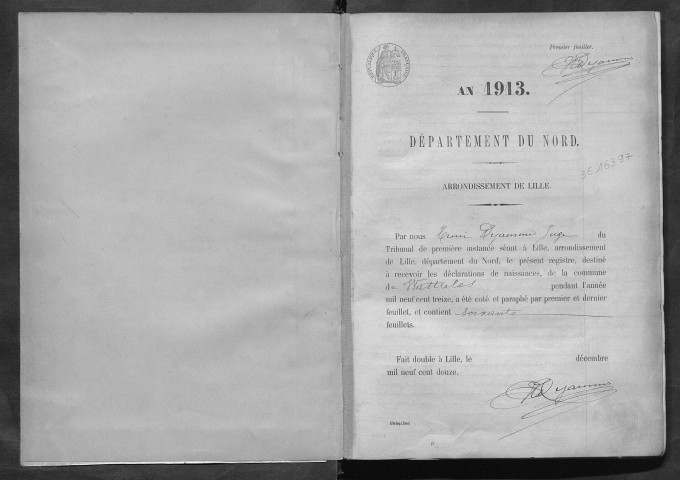 Premier feuillet.
AN 1913.
DÉPARTEMENT DU NORD.
3E 16397
ARRONDISSEMENT DE LILLE.
Par nous Juge du
Tribunal de première instance séant à Lille, arrondissement
de Lille, département du Nord, le présent registre, destiné
à recevoir les déclarations de naissances, de la commune
de Wattrelos pendant l'année
mil neuf cent treize, a été coté et paraphé par premier et dernier
feuillet, et contient soixante
feuillets.
Fait double à Lille, le décembre
mil neuf cent douze.